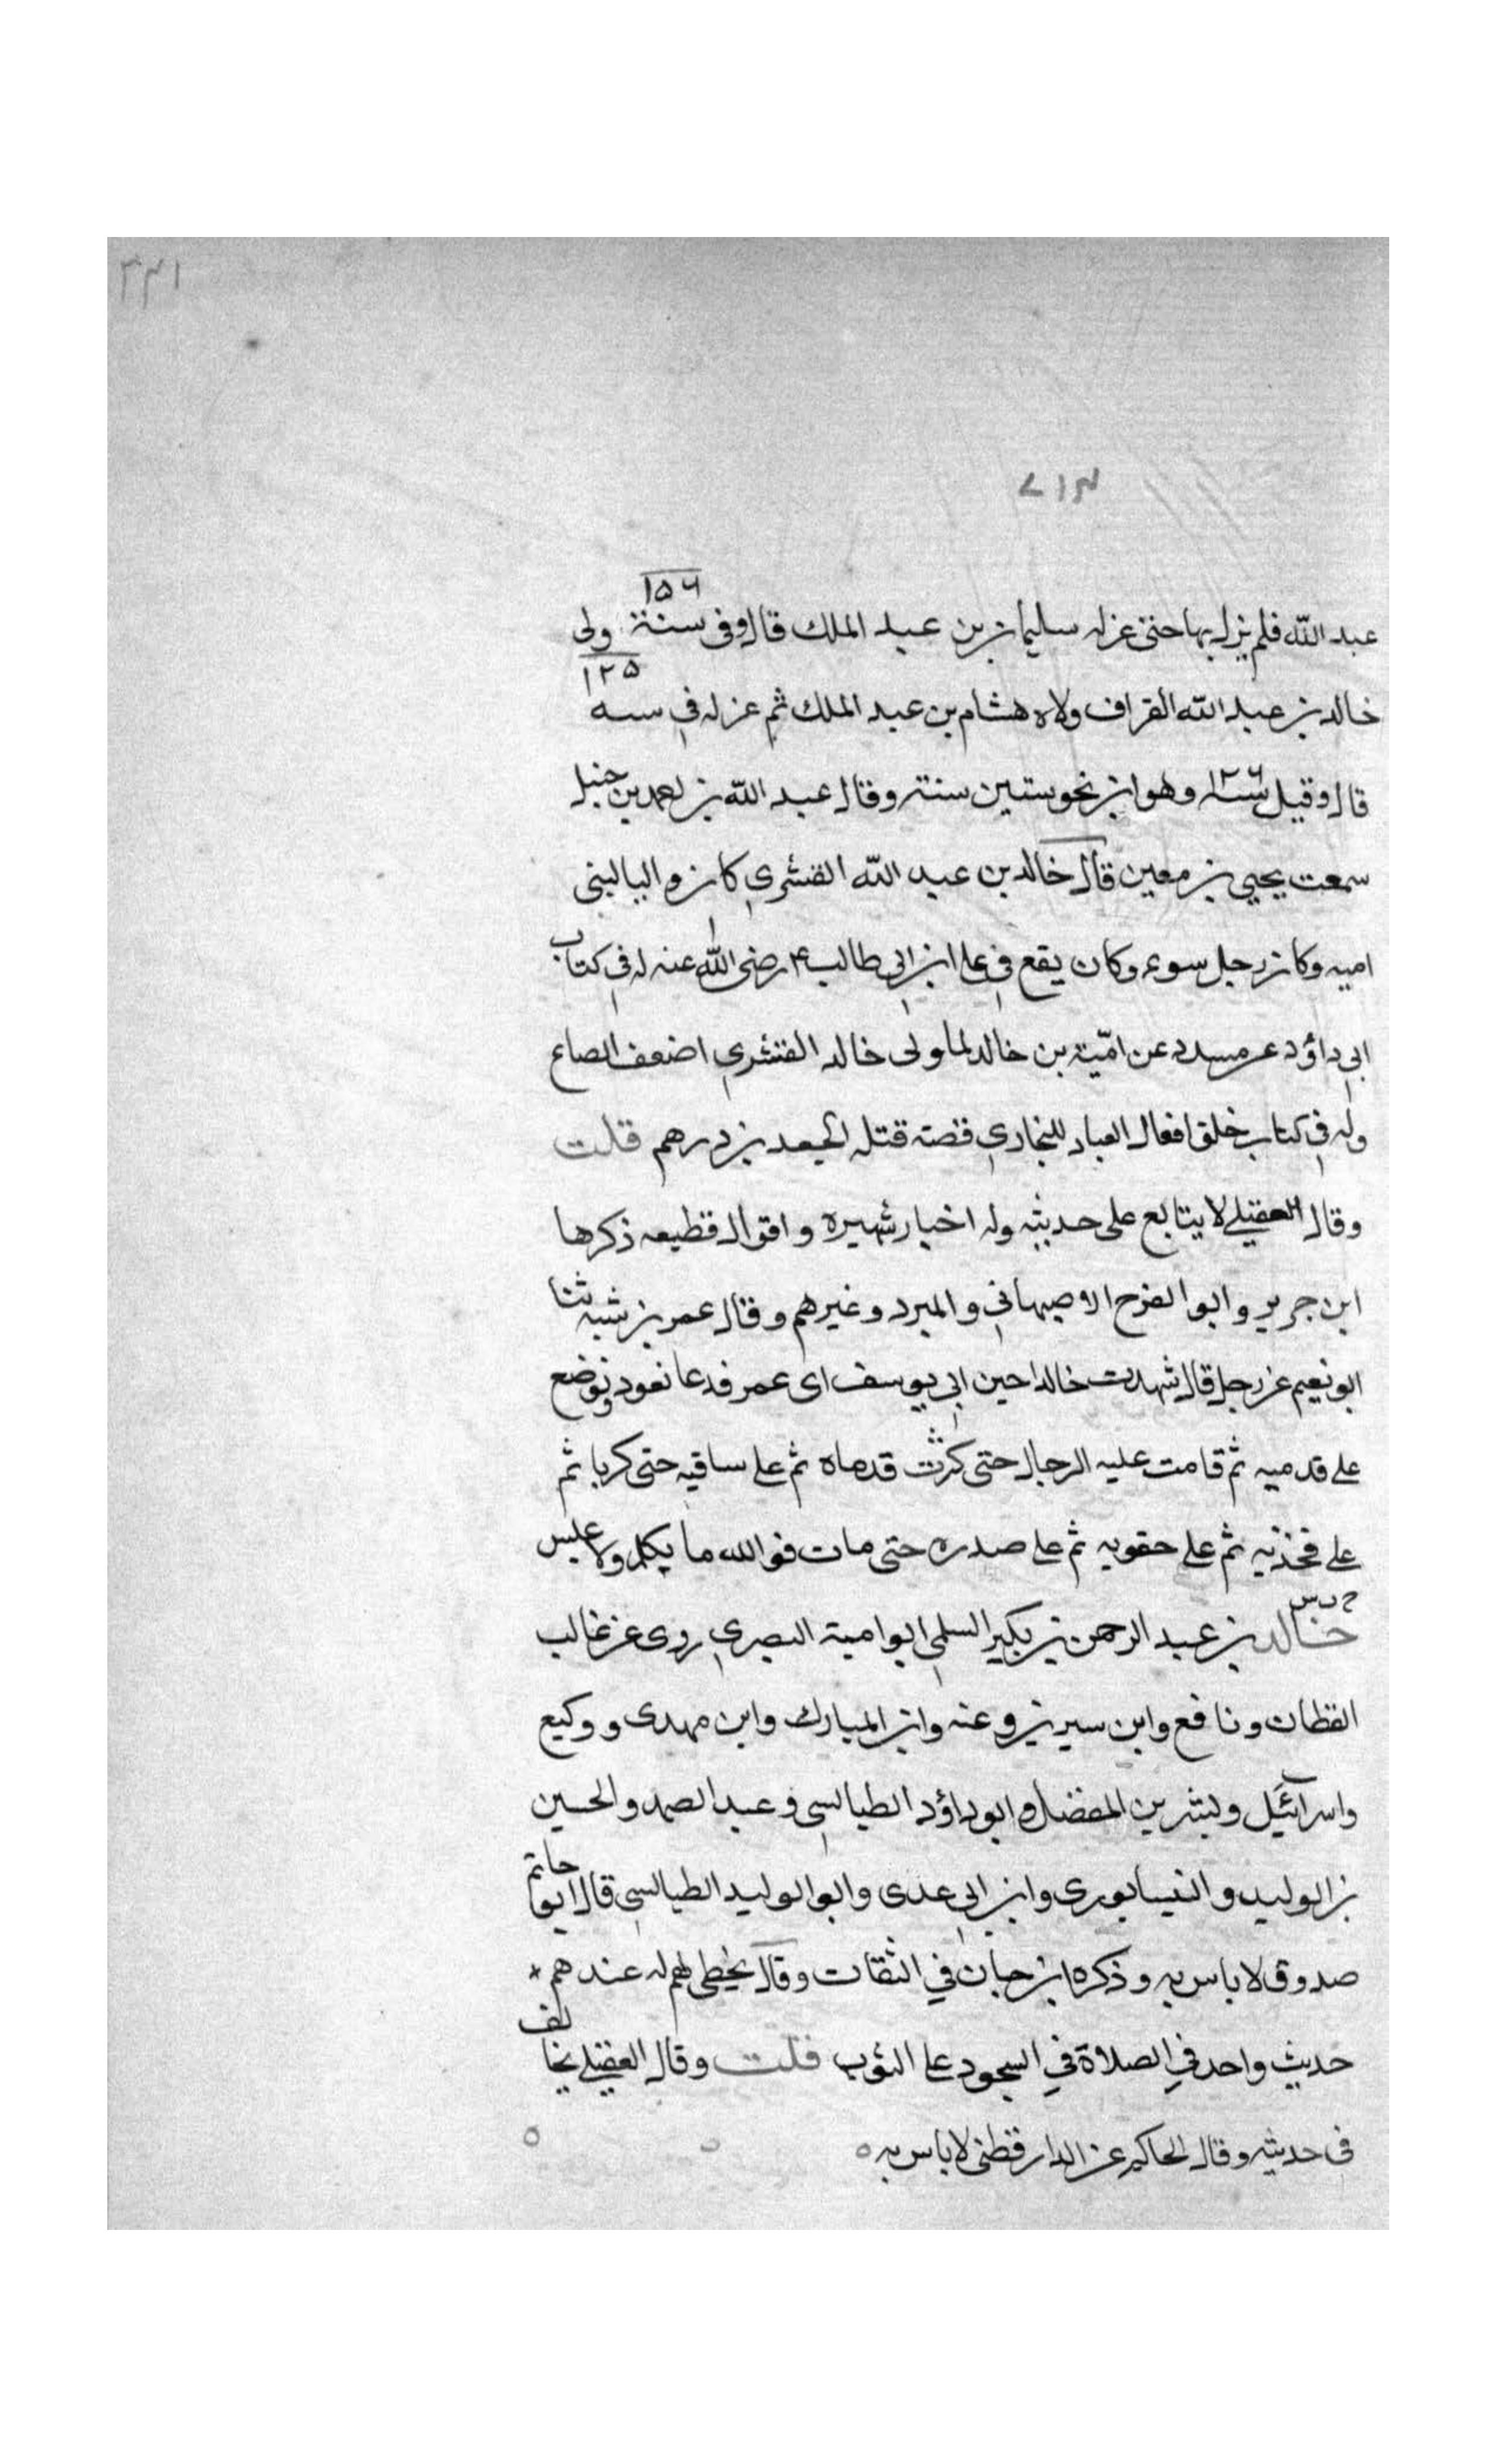 ٣٣١
٧١٣
١٥٦
عبد الله فلم يزل بها حتى عزله سليمان بن عبد الملك قال وفى سنة ولى
١٢٥
خالد بن عبد الله القراف ولاه هشام بن عبد الملك ثم عزله فى سنه
قال وقيل سنة ١٢٦ وهو ابن نحو ستين سنة وقال عبد الله بن احمد بن حنبل
سمعت يحيى بن معين قال خالد بن عبد الله القشرى كان واليا لبنى
اميه وكان رجل سوء وكان يقع فى على ابن ابى طالب رضى الله عنه له فى كتاب
ابى داؤد عن مسدد عن امّية بن خالد لما ولى خالد القشرى اضعف الصاع
وله فى كتاب خلق افعال العباد للبخارى قصة قتله لجعد بن درهم قلت
وقال العقيلى لا يتابع على حديثه وله اخبار شهيره واقوال فظيعه ذكرها
ابن جرير وابو الفرج الاصبهانى والمبرد وغيرهم وقال عمر بن شبه ثنا
ابو نعيم عن رجل قال شهدت خالدا حين ابى يوسف اى عمر فدعا نعود فوضع
على قدميه ثم قامت عليه الرجال حتى كرثت قدماه ثم على ساقيه حتى كربا ثم
على فخذيه ثم على حقويه ثم على صدره حتى مات فوالله ما يكلم ولا عبس
خالد بن عبد الرحمن بن بكير السلمى ابو امية البصرى روى عن غالب
القطان ونافع وابن سيرين وعنه وابن المبارك وابن مهدى ووكيع
واسرائيل وبشر بن المفضل وابو داؤد الطيالسى وعبد الصمد والحسين
بن الوليد والنيسابورى وابن ابى عدى وابو الوليد الطيالسى قال ابو حاتم
صدوق لا باس به وذكره ابن حبان في الثقات وقال يخطى لهم له عندهم
حديث واحد في الصلاة في السجود على الثوب قلت وقال العقيلى يخالف
فى حديثه وقال الحاكم عن الدارقطنى لا باس به